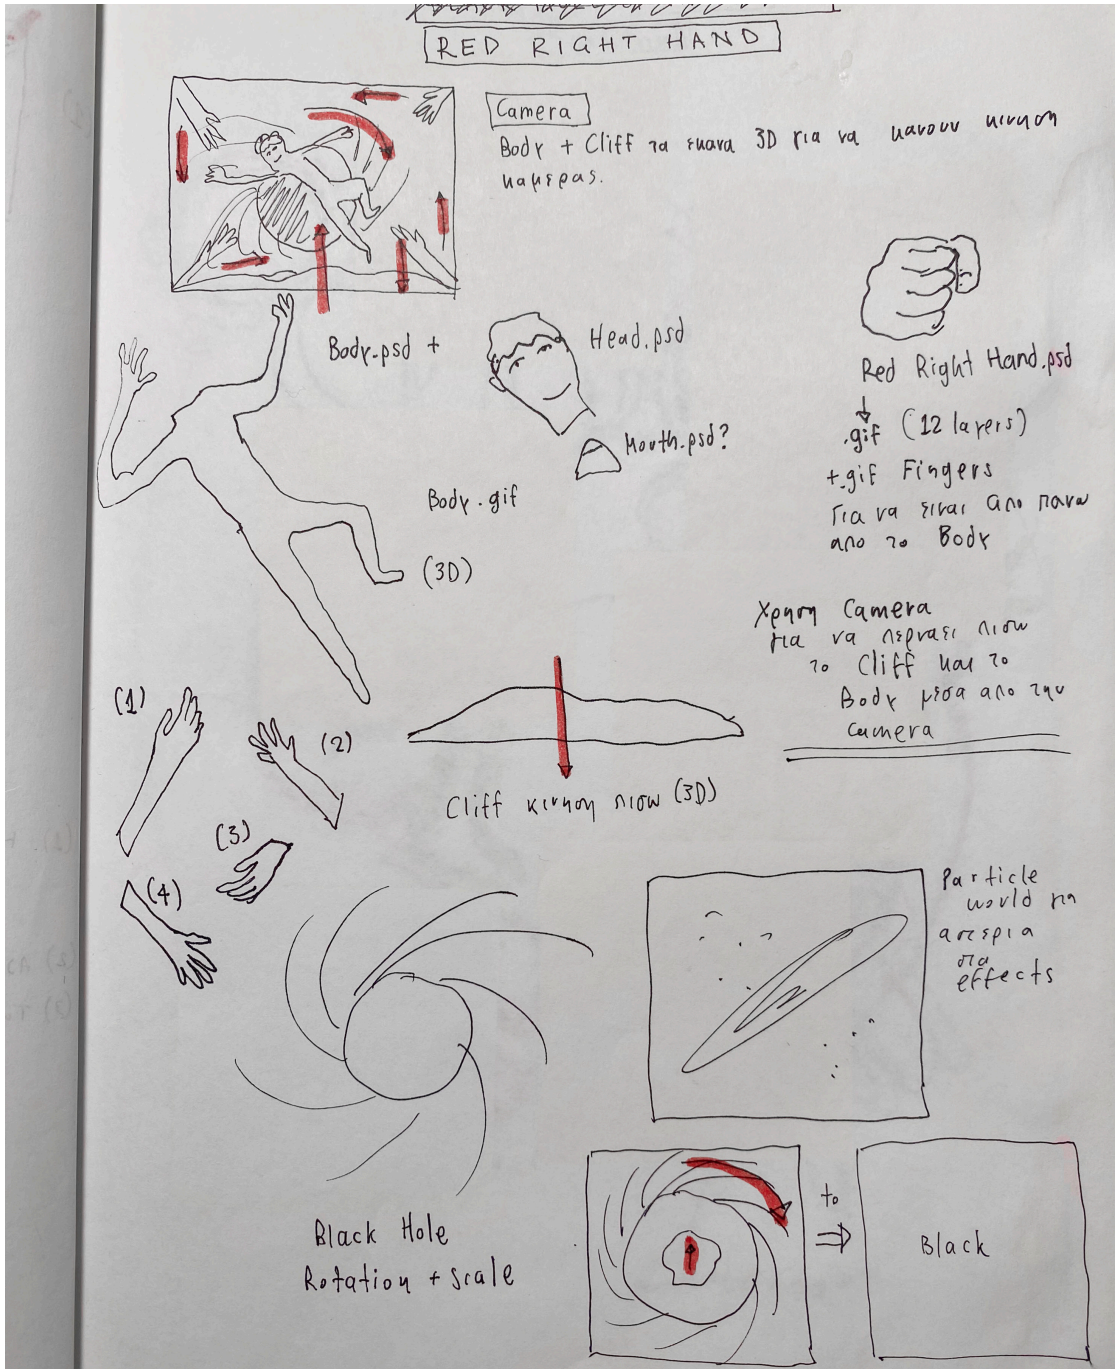 RED RIGHT HAND
Camera
Body + Cliff τα εκανα 3D για να κανουν κινηση
καμερας.
Body.psd +
Head.psd
Mouth.psd?
Body.gif
(3D)
Red Right Hand.psd
↓
.gif (12 layers)
+.gif Fingers
Για να ειναι απο πανω
απο το Body
Χρηση Camera
για να περνaει πισω
το Cliff και το
Body μεσα απο την
camera
(1)
(2)
(3)
(4)
Cliff κινηση πισω (3D)
Particle
world για
αστερια
για
effects
Black Hole
Rotation + scale
to
⇒
Black